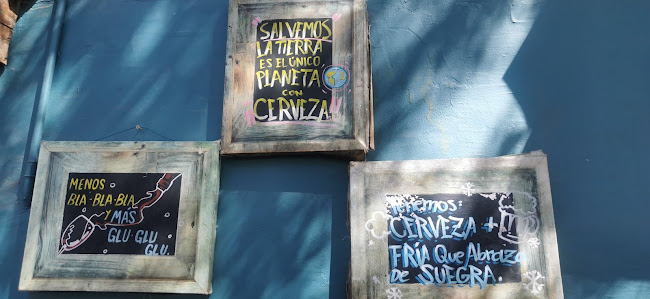 SALVEMOS
LA TIERRA
ES EL ÚNICO
PLANETA
CON
CERVEZA
MENOS
BLA-BLA-BLA
Y MÁS
GLU-GLU
GLU.
TENEMOS:
CERVEZA +
FRÍA QUE Abrazo
de SUEGRA.